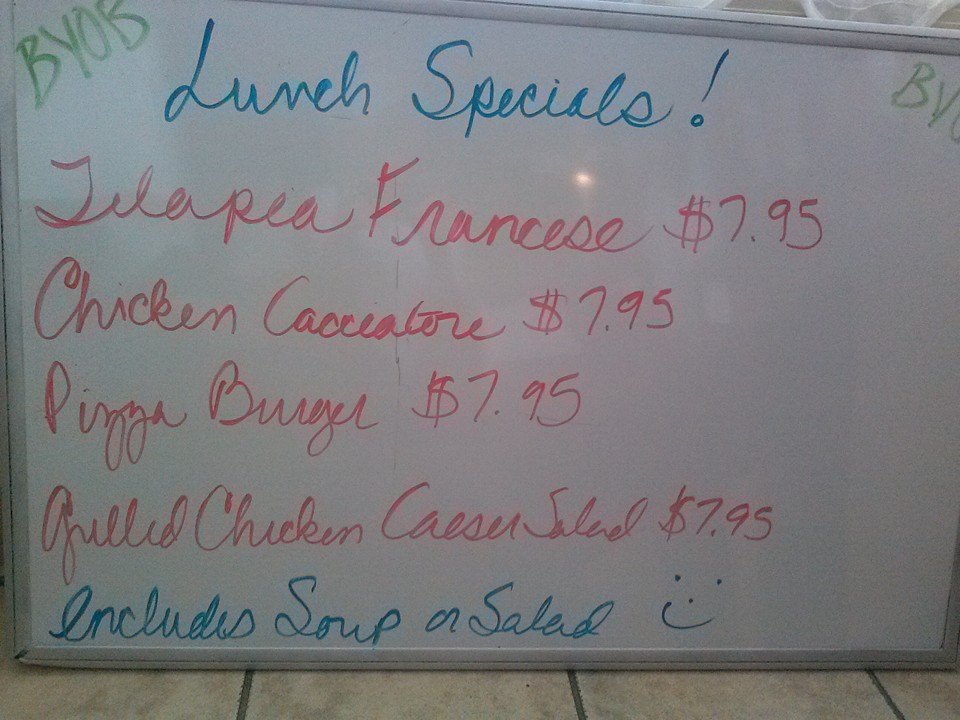 BYOB
Lunch Specials!
BYO
Tilapia Francese $7.95
Chicken Cacciatore $7.95
Pizza Burger $7.95
Grilled Chicken Caeser Salad $7.95
Includes Soup or Salad